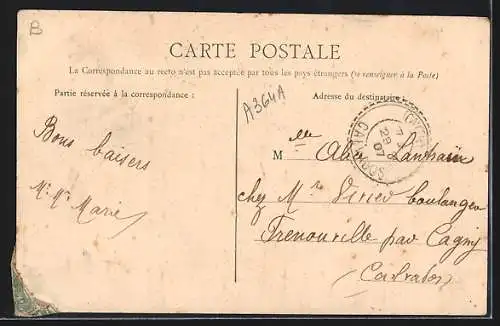 B
CARTE POSTALE
La Correspondance au recto n'est pas acceptée par tous les pays étrangers (se renseigner à la Poste)
Partie réservée à la correspondance :
Adresse du destinataire
A364A
Bons baisers
Marie
Mlle Alice
chez Mr boulanger
Frenouville par Cagny
(Calvados)
CALVADOS
7
28
07